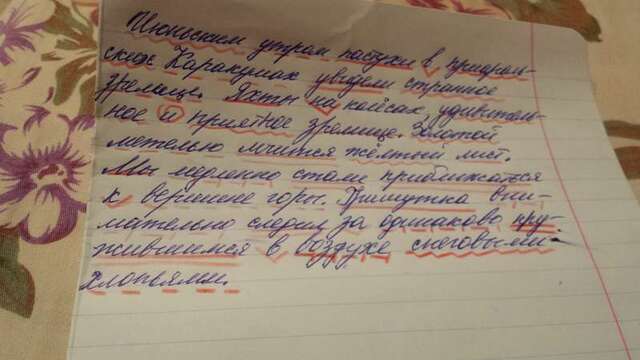 Июньским утром пастухи в придон-
ских Каракумах увидели странное
зрелище. Яхты на колёсах, удивитель-
ное и приятное зрелище. Золотой
метелью мчится жёлтый лист.
Мы медленно стали приближаться
к вершине горы. Гримутка вни-
мательно следил за одинаково кру-
жившимися в воздухе снеговыми
хлопьями.